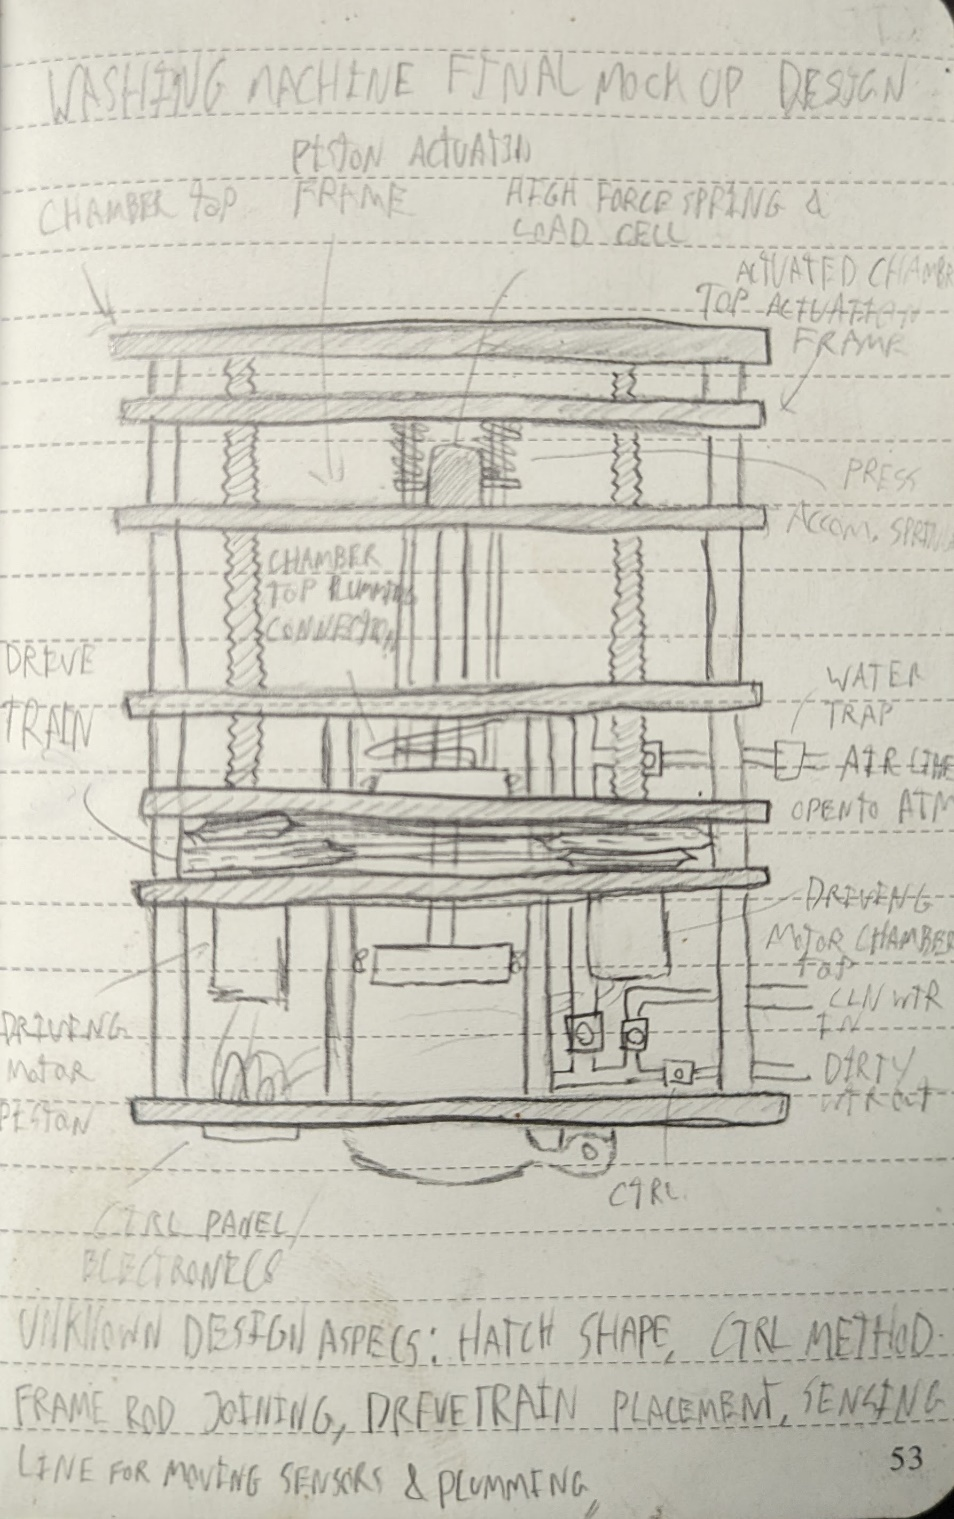 WASHING MACHINE FINAL MOCK UP DESIGN
PISTON ACTUATIN
FRAME
CHAMBER TOP
HIGH FORCE SPRING &
LOAD CELL
ACTUATED CHAMB
TOP ACTUATION
FRAME
PRESS
ACCOM. SPRING
CHAMBER
TOP PLUMMING
CONNECTION
DRIVE
TRAIN
WATER
TRAP
AIR LINE
OPEN TO ATM
DRIVING
MOTOR CHAMBER
TOP
CLN WTR
IN
DIRTY
WTR OUT
DRIVING
MOTOR
PISTON
CTRL
CTRL PANEL
ELECTRONICS
UNKNOWN DESIGN ASPECS: HATCH SHAPE, CTRL METHOD.
FRAME ROD JOINING, DREVETRAIN PLACEMENT, SENSING
LINE FOR MOVING SENSORS & PLUMMING
53